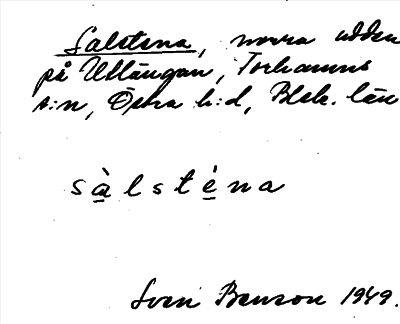 Salstena, norra udden
på Utlängan, Torhamns
s:n, Östra h:d, Blek. län
sàlsténa
Sven Benson 1949.